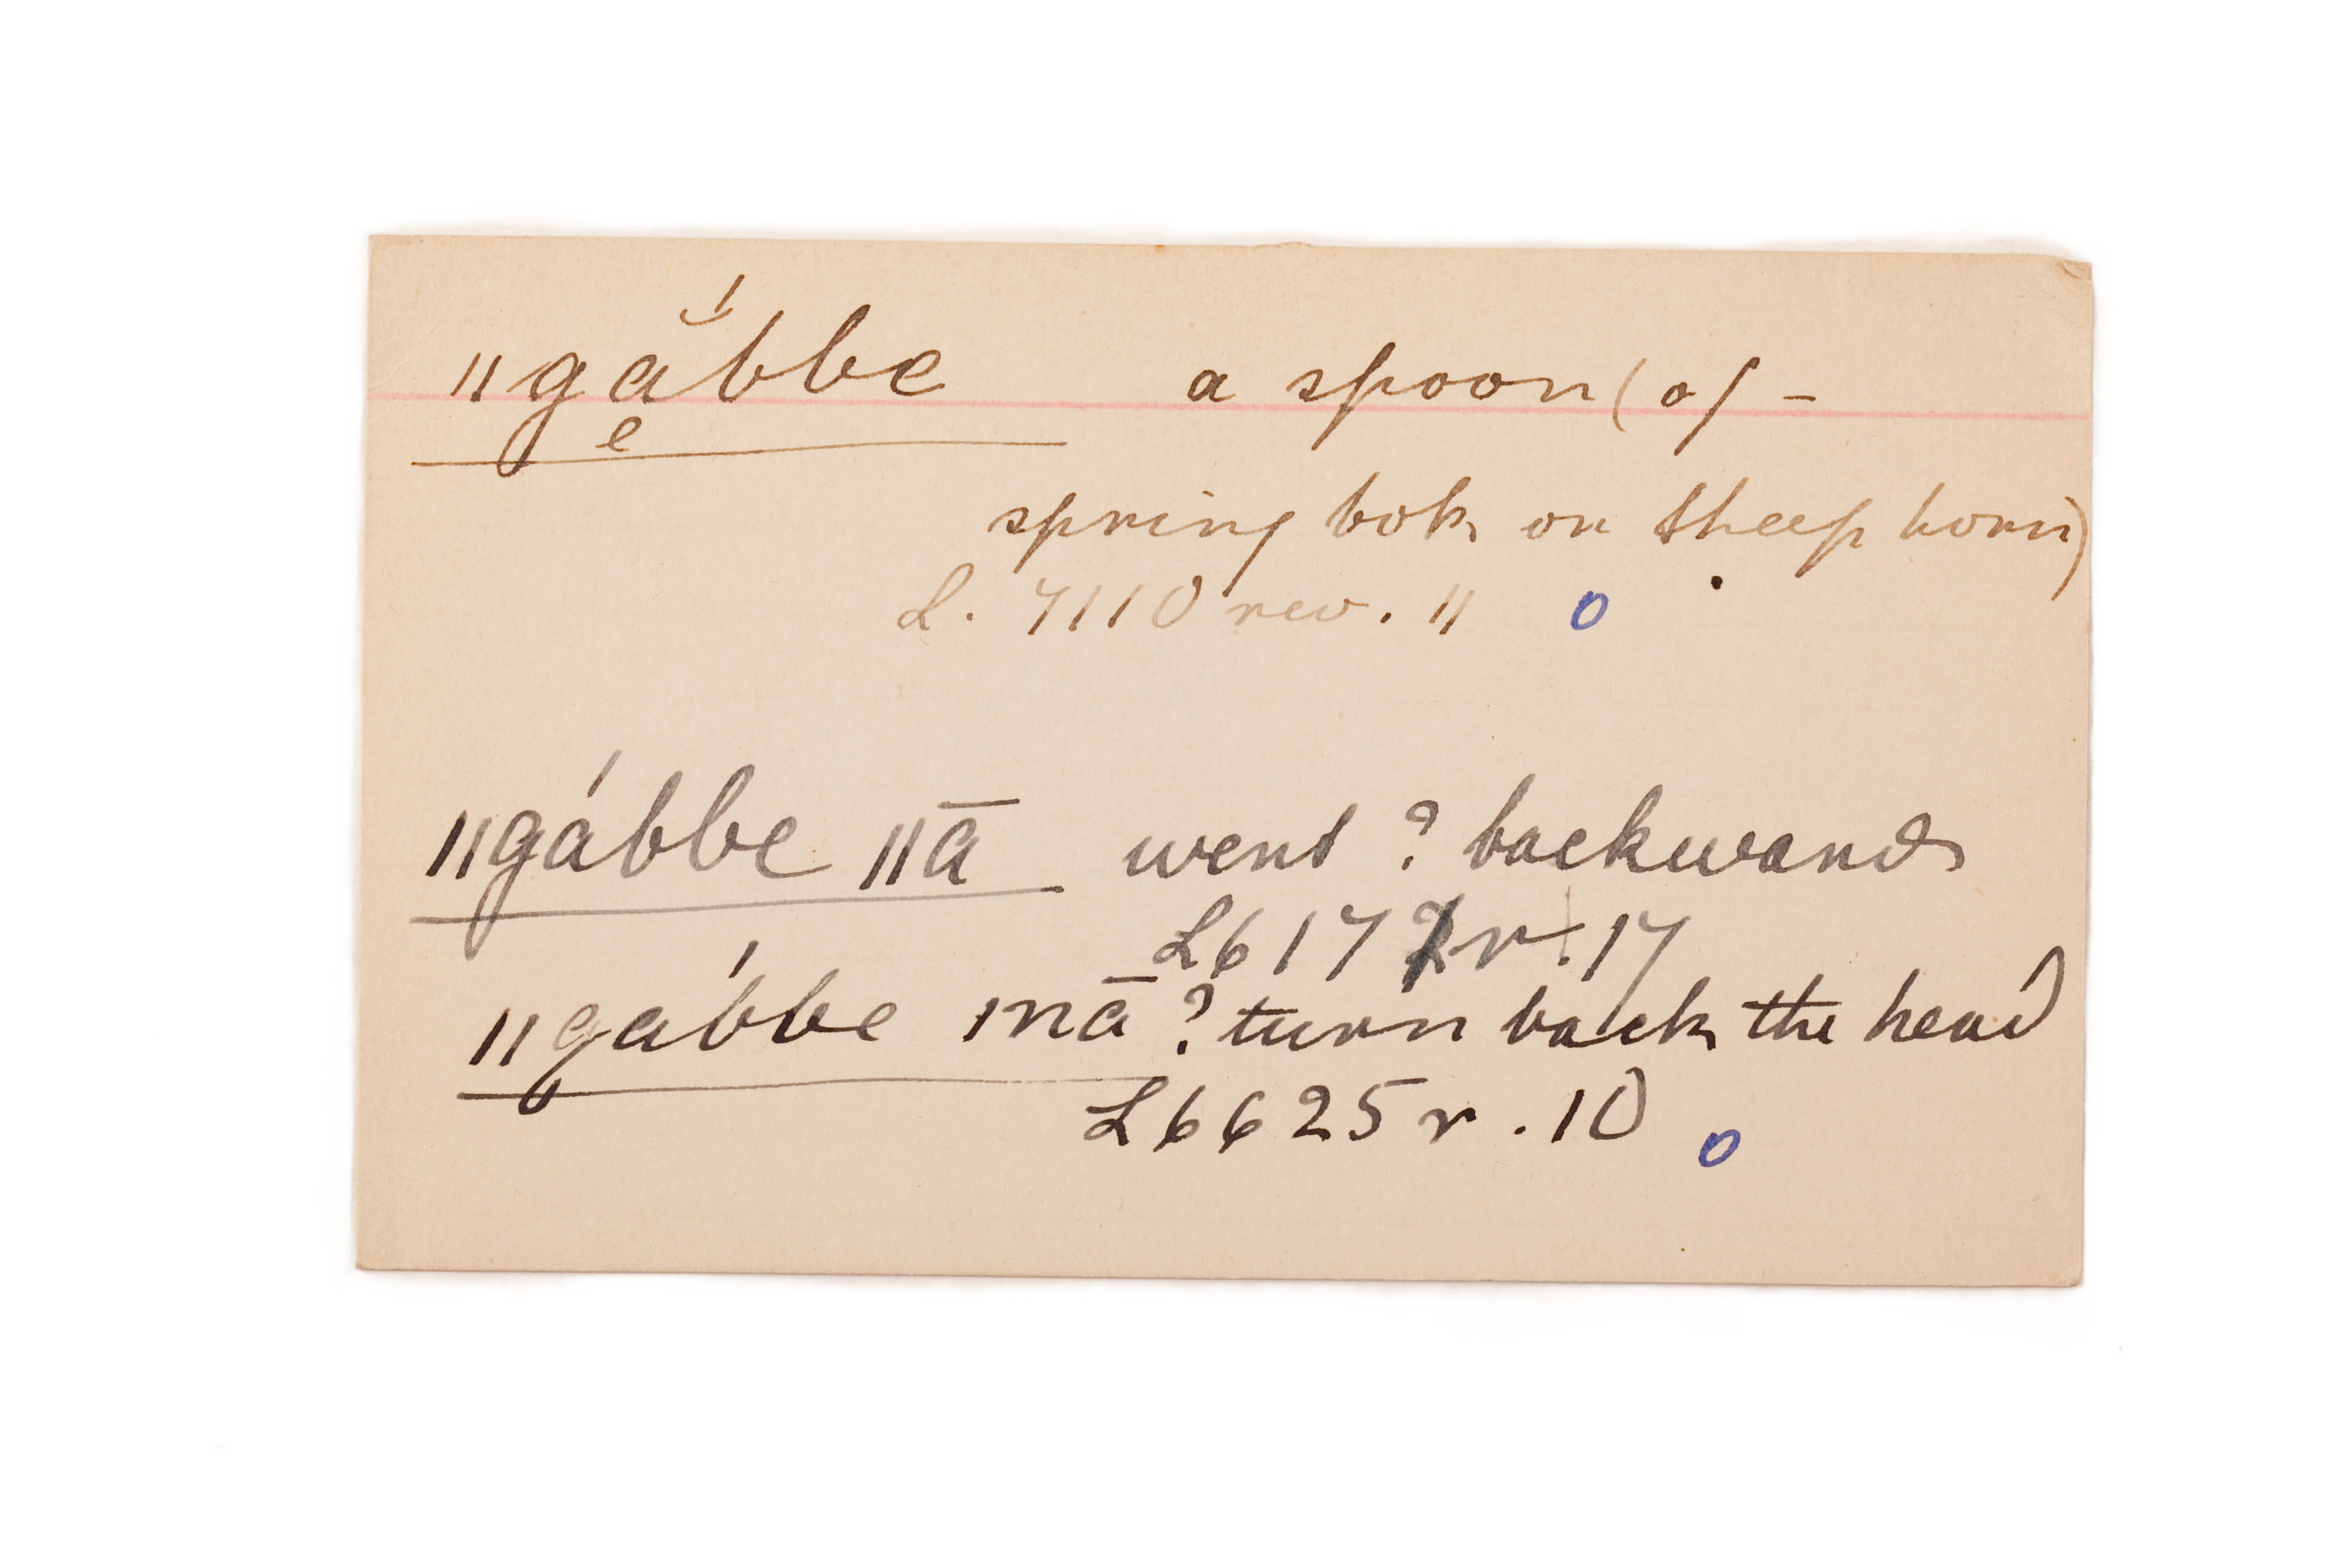 ǁgắbbe a spoon (of -
e
spring bok or sheep horn)
L. 7110 rev. 11 o
ǁgábbe ǁā went ? backwards
L 6177 r. 17
ǁgábbe ǀnā ? turn back the head
L 6625 r. 10 o